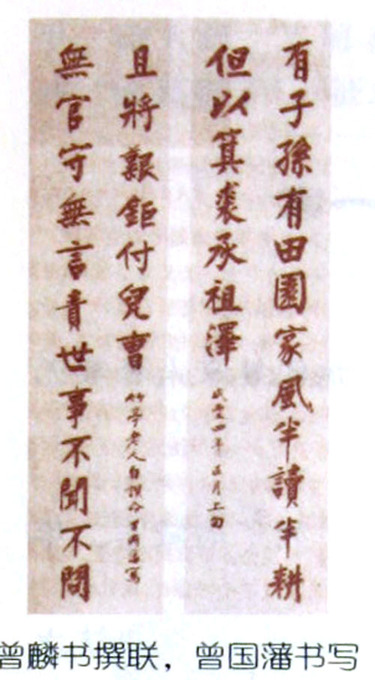 有子孫有田園家風半讀半耕
但以箕裘承祖澤
咸豐四年正月上旬
無官守無言責世事不聞不問
且將艱鉅付兒曹
竹亭老人自撰命男國藩寫
曾麟书撰联，曾国藩书写